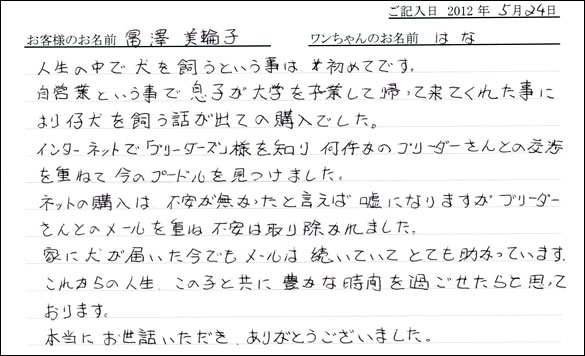 ご記入日 2012年 5月24日
お客様のお名前 冨澤 美輪子 ワンちゃんのお名前 はな
人生の中で犬を飼うという事は、初めてです。
自営業という事で息子が大学を卒業して帰って来てくれた事に
より仔犬を飼う話が出ての購入でした。
インターネットで「ブリーダーズ」様を知り何件かのブリーダーさんとの交渉
を重ねて今のプードルを見つけました。
ネットの購入は不安が無かったと言えば嘘になりますがブリーダー
さんとのメールを重ね不安は取り除かれました。
家に犬が届いた今でもメールは続いていてとても助かっています。
これからの人生、この子と共に豊かな時間を過ごせたらと思って
おります。
本当にお世話いただき、ありがとうございました。